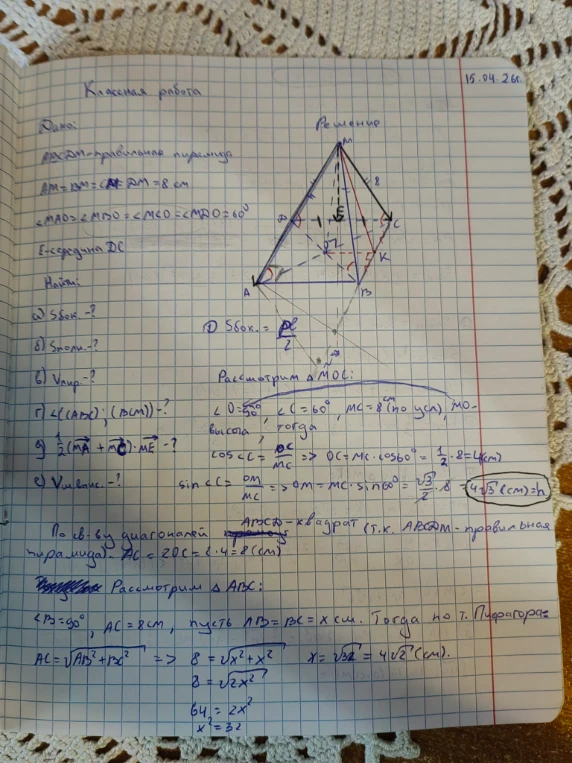 15.04.26г.
Классная работа
Дано:
Решение
ABCDM-правильная пирамида
AM=BM=CM=DM=8 см
∠MAO=∠MBO=∠MCO=∠MDO=60°
E-середина DC
Найти:
а) Sбок.-?
б) Sполн.-?
в) Vпир.-?
г) ∠((ABC);(BCM))-?
д) 1/2(MA + MC)·ME -?
е) Vш.впис.-?
M
8
D
E
C
O
K
A
B
1) Sбок. = Pl/2
Рассмотрим △MOC:
∠O=90°, ∠C=60°, MC=8см(по усл), MO-
высота, тогда
cos∠C = OC/MC => OC=MC·cos60°=1/2·8=4(см)
sin∠C = OM/MC => OM=MC·sin60°=√3/2·8=4√3(см)=h
По св-ву диагоналей ABCD-квадрат (т.к. ABCDM-правильная
пирамида). AC=2OC=2·4=8(см)
Рассмотрим △ABC:
∠B=90°, AC=8см, пусть AB=BC=x см. Тогда по т. Пифагора:
AC=√AB²+BC² => 8=√x²+x² x=√32=4√2(см).
8=√2x²
64=2x²
x²=32